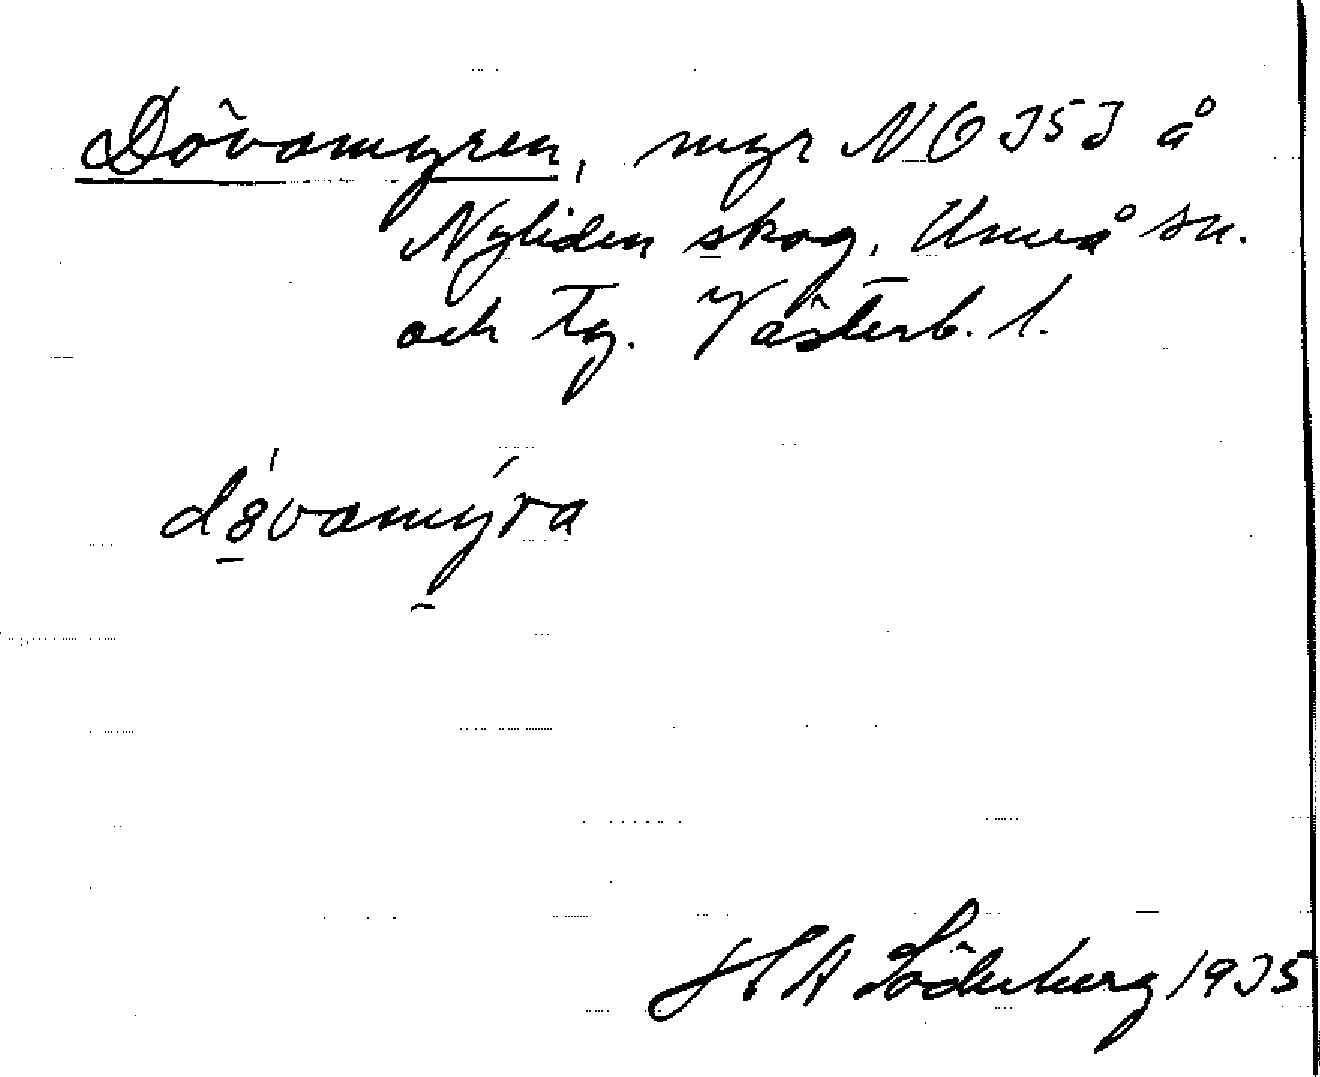 Dövamyren, myr NO 353 å
Nyliden skog, Umeå sn.
och tg. Västerb. l.
d8vamýra
H A Söderberg 1935